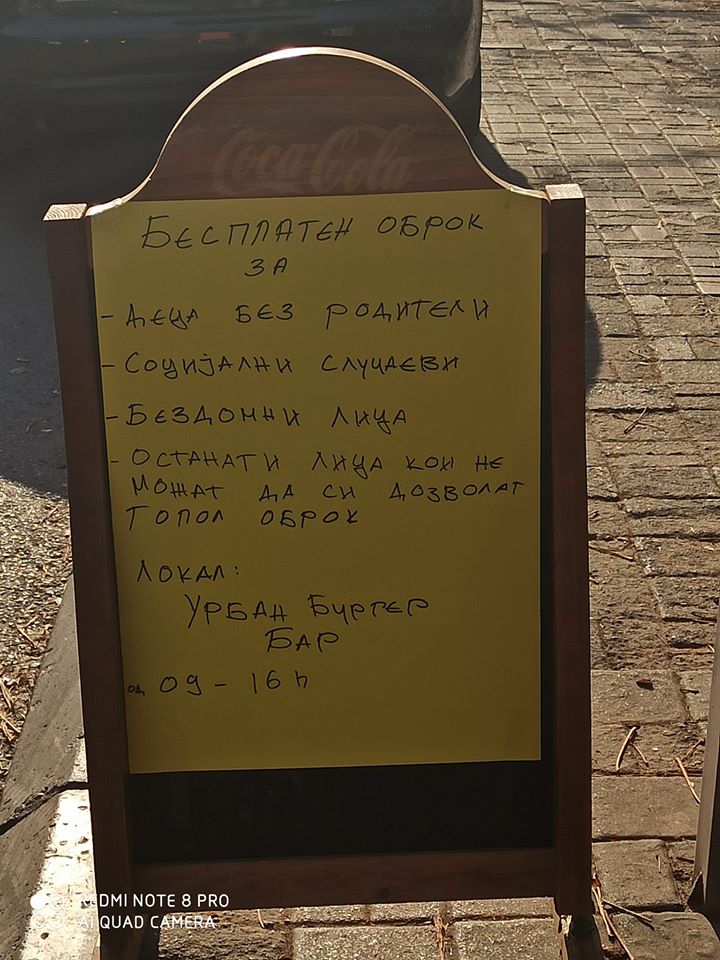 Coca-Cola
БЕСПЛАТЕН ОБРОК
ЗА
- ДЕЦА БЕЗ РОДИТЕЛИ
- СОЦИЈАЛНИ СЛУЧАЕВИ
- БЕЗДОМНИ ЛИЦА
- ОСТАНАТИ ЛИЦА КОИ НЕ
МОЖАТ ДА СИ ДОЗВОЛАТ
ТОПОЛ ОБРОК
ЛОКАЛ:
УРБАН БУРГЕР
БАР
од 09 - 16 h
REDMI NOTE 8 PRO
AI QUAD CAMERA